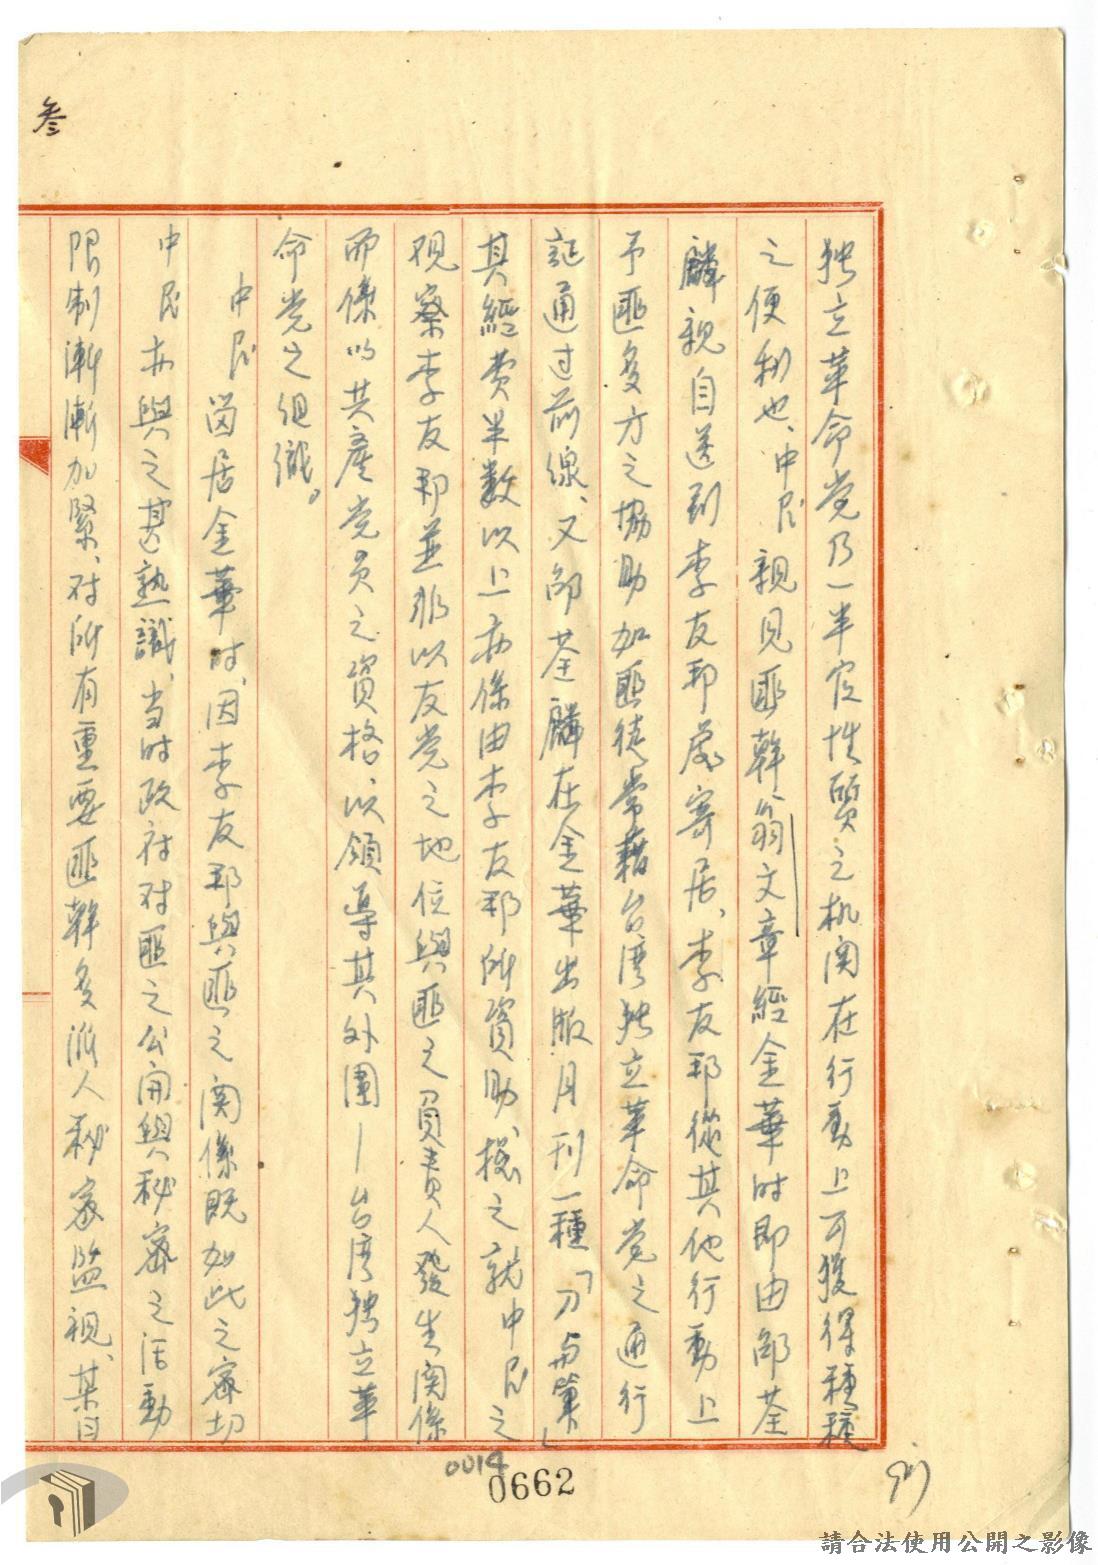 叁
独立革命党乃一半官性質之机関在行動上可獲得種種
之便利也、中民親見匪幹翁文章經金華時即由邵荃
麟親自送到李友邦處寄居、李友邦從其他行動上
予匪多方之協助如匪徒常藉台湾独立革命党之通行
証通过前線、又邵荃麟在金華出版月刊一種「刀与筆」
其經費半数以上亦係由李友邦所資助、據之就中民之
視察李友邦並非以友党之地位與匪之負責人發生関係
而係以共產党員之資格、以領導其外圍—台湾独立革
命党之組織。
中民留居金華时、因李友邦與匪之関係既如此之密切
中民亦與之甚熟識、当时政府对匪之公開與秘密之活動
限制漸漸加緊、对所有重要匪幹多派人秘密監視、某日
0014
0662
請合法使用公開之影像